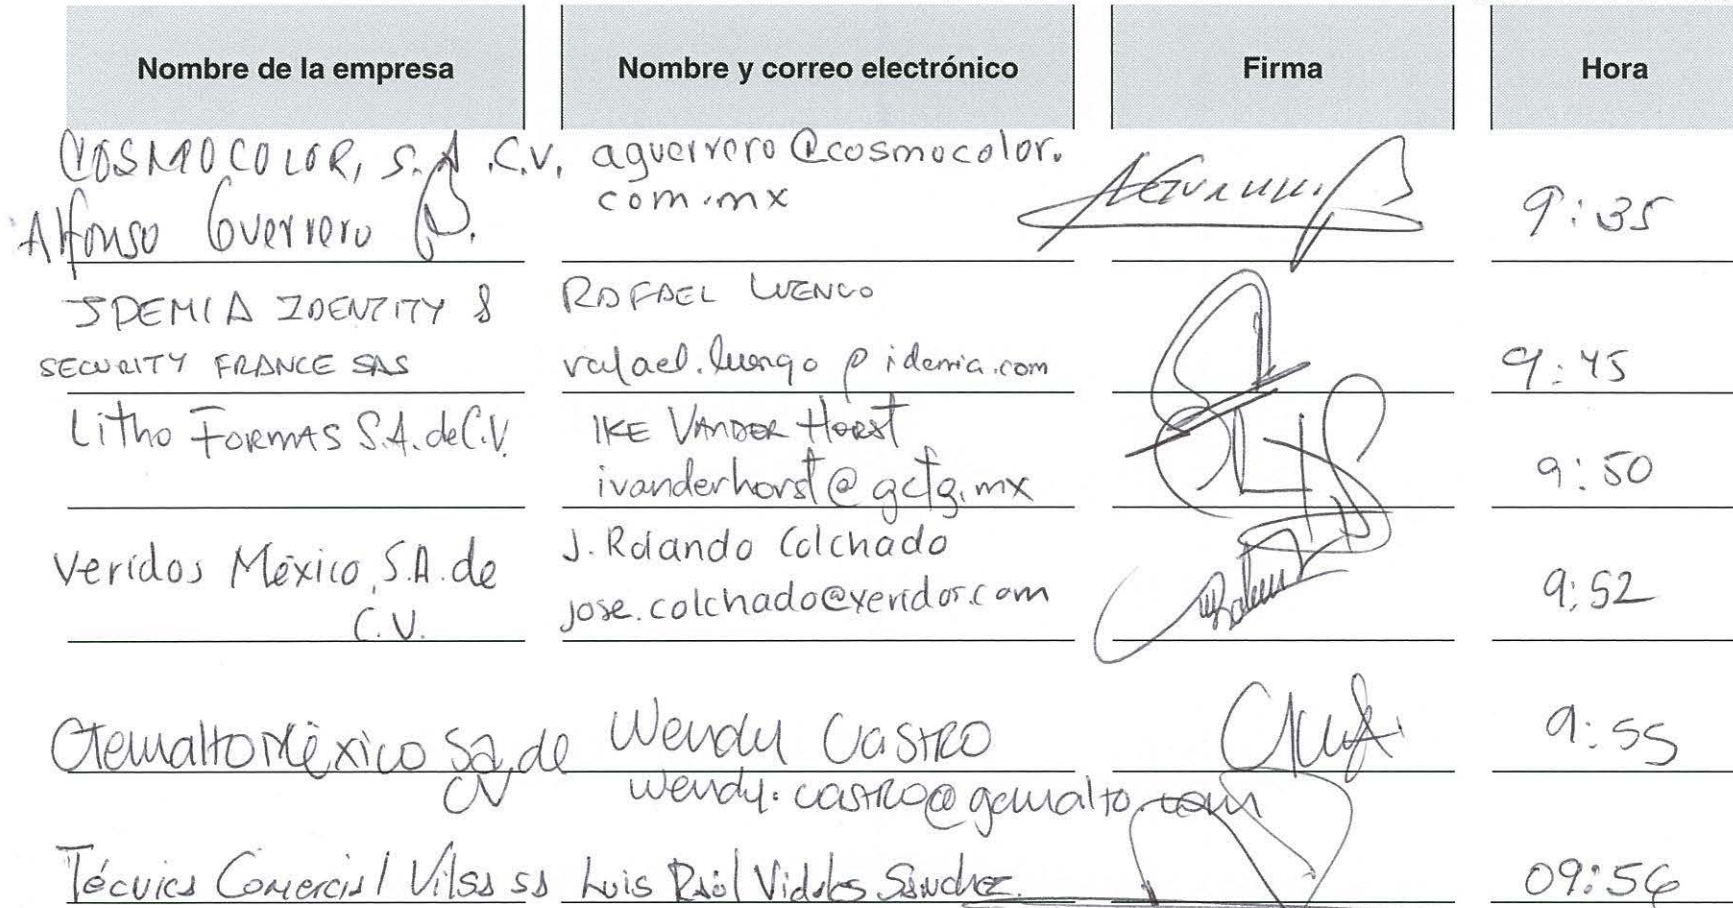 Nombre de la empresa Nombre y correo electrónico Firma Hora
COSMOCOLOR, S.A.C.V. aguerrero@cosmocolor.
com.mx
Alfonso Guerrero B. 9:35
IDEMIA IDENTITY & RAFAEL LUENGO
SECURITY FRANCE SAS rafael.luengo@idemia.com 9:45
Litho FORMAS S.A. de C.V. IKE VANDER HORST
ivanderhorst@gctg.mx 9:50
Veridos México, S.A. de J. Rolando Colchado
C.V. jose.colchado@veridos.com 9:52
Gemalto México Sa de Wendy CASTRO 9:55
CV wendy.castro@gemalto.com
Técnica Comercial Vilsa sa Luis Raúl Vidales Sánchez 09:56